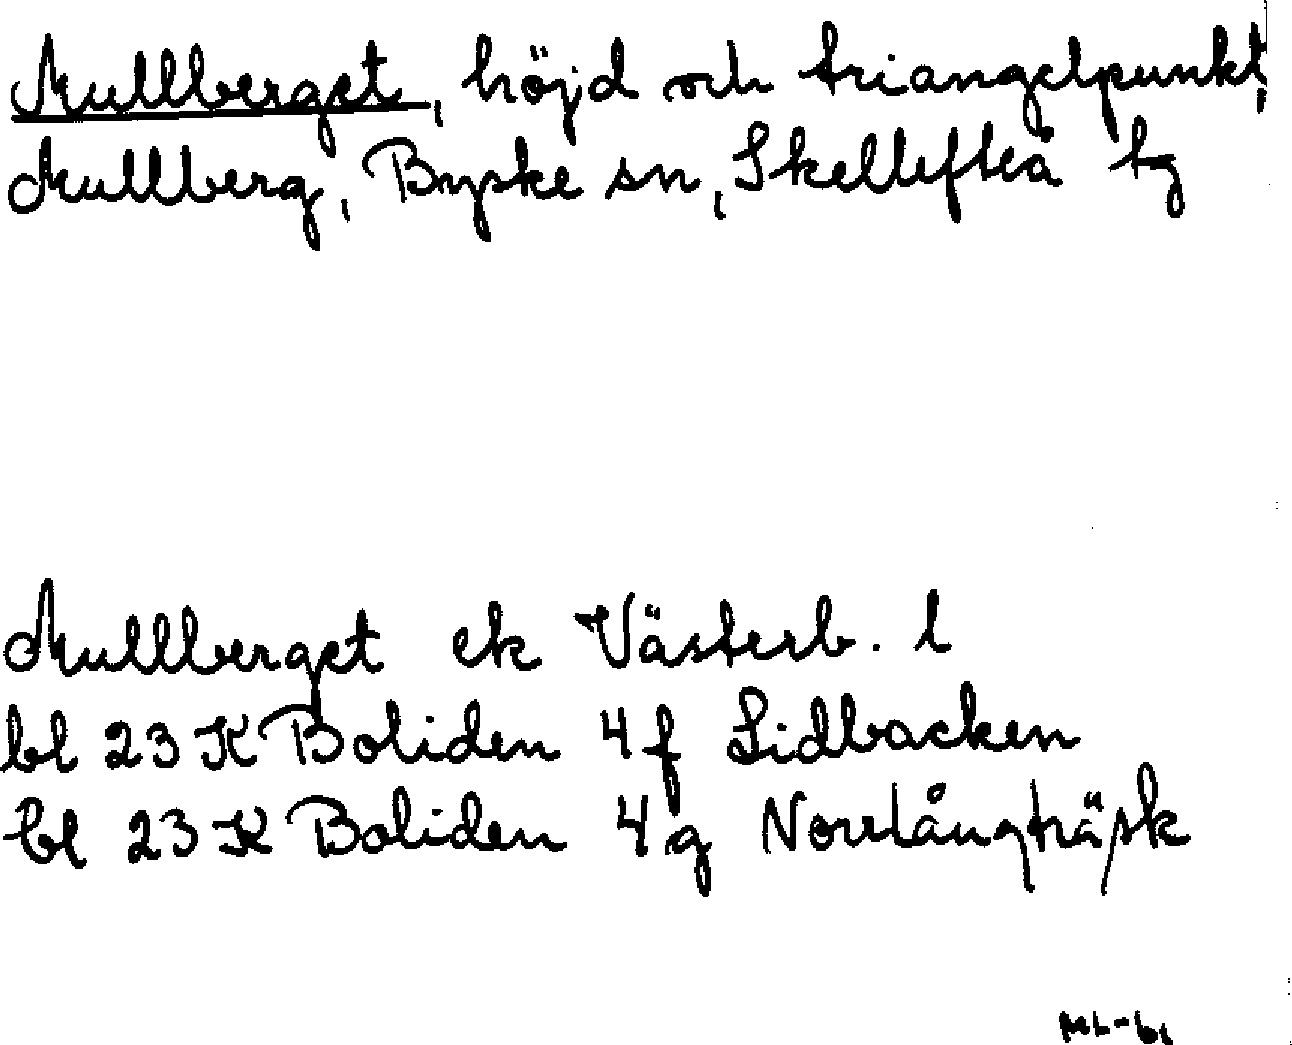 Mullberget, höjd och triangelpunkt,
Mullberg, Byske sn, Skellefteå tg
Mullberget ek Västerb. l
bl 23 K Boliden 4 f Lidbacken
bl 23 K Boliden 4 g Norrlångträsk
ML-61